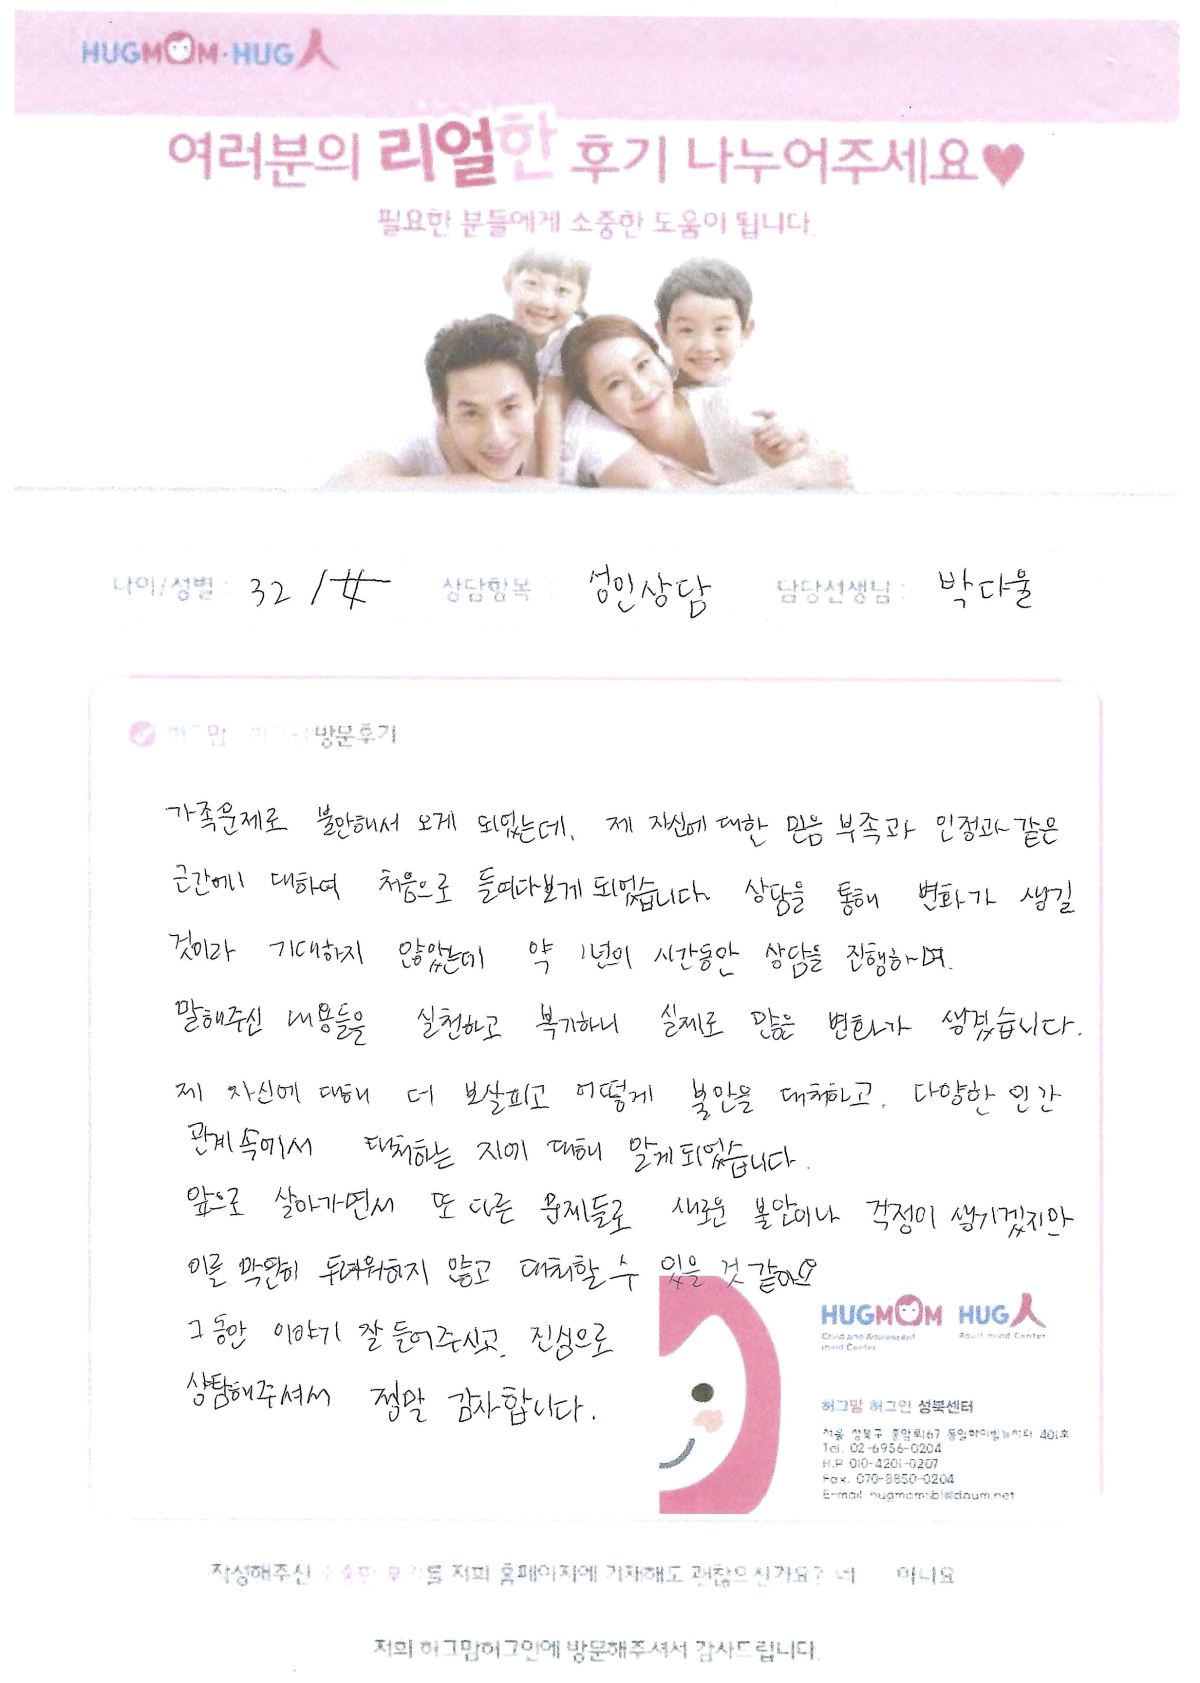 HUGMOM·HUG人
여러분의 리얼한 후기 나누어주세요♥
필요한 분들에게 소중한 도움이 됩니다.
나이/성별 : 32 / 女 상담항목 : 성인상담 담당선생님 : 박다울
허그맘 허그인 방문후기
가족문제로 불안해서 오게 되었는데, 제 자신에 대한 믿음 부족과 인정과 같은
근간에 대하여 처음으로 들여다보게 되었습니다. 상담을 통해 변화가 생길
것이라 기대하지 않았는데 약 1년의 시간동안 상담을 진행하며,
말해주신 내용들을 실천하고 복기하니 실제로 많은 변화가 생겼습니다.
제 자신에 대해 더 보살피고 어떻게 불안을 대처하고, 다양한 인간
관계 속에서 대처하는 지에 대해 알게되었습니다.
앞으로 살아가면서 또 다른 문제들로 새로운 불안이나 걱정이 생기겠지만
이를 막연히 두려워하지 않고 대처할 수 있을 것 같아요
그동안 이야기 잘 들어주시고, 진심으로
상담해주셔서 정말 감사합니다.
HUGMOM HUG人
Child and Adolescent mind Center Adult mind Center
허그맘 허그인 성북센터
서울 성북구 종암로167 동일하이빌뉴시티 401호
Tel. 02-6956-0204
H.P 010-4201-0207
Fax. 070-8850-0204
E-mail hugmomsbl@daum.net
작성해주신 소중한 후기를 저희 홈페이지에 기재해도 괜찮으신가요? 네 아니요
저희 허그맘허그인에 방문해주셔서 감사드립니다.